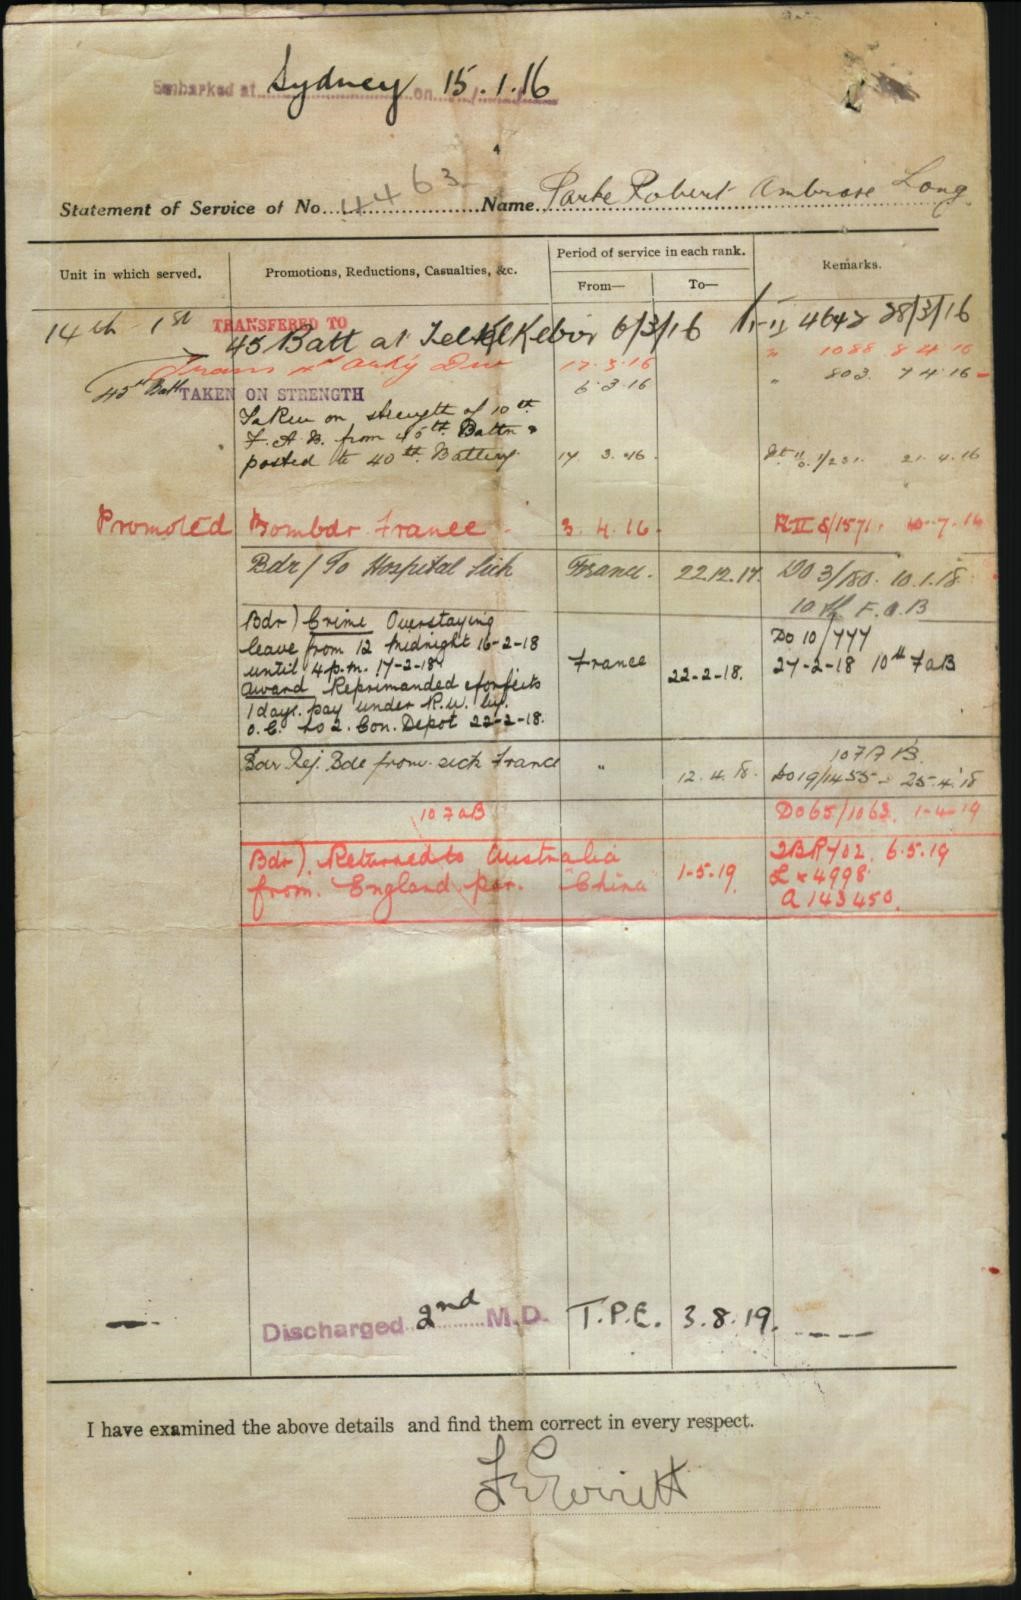 Embarked at Sydney on 15.1.16
4
Statement of Service of No. 4463 Name Parke Robert Ambrose Long
Unit in which served. Promotions, Reductions, Casualties, &c. Period of service in each rank. Remarks.
From— To—
14th 1st TRANSFERED TO
45 Batt at Tel El Kebir 6/3/16 4642 28/3/16
Trans 4th Arty Div 17.3.16 " 1088 8 4 16
45th Batt TAKEN ON STRENGTH 6.3.16 " 803. 7 4.16
Taken on strength of 10th
F.A.B. from 45th Battn &
posted to 40th Battery 17 3.16. 21.4.16
Promoted Bombdr France - 3.4.16. 8/1571. 10-7-16
Bdr / To Hospital Sick France. 22.12.17. DO 3/180. 10.1.18
10th F.A.B
Bdr) Crime Overstaying
leave from 12 midnight 16-2-18
until 4 p.m. 17-2-18
Award Reprimanded & forfeits
1 days. pay under R.W. by
O.C. No 2. Con. Depot 22-2-18.
France 22-2-18. DO 10/777
27-2-18 10th FAB
Bdr Rej. Bde from sick France " 12.4.18. 10 FAB.
DO 19/1455 - 25.4.18
10 FAB DO 65/1063. 1-4-19
Bdr). Returned to Australia
from. England per. "China" 1-5-19. 2BR 402. 6.5.19
L x 4998
A 143450.
Discharged 2nd M.D. T.P.E. 3.8.19.
I have examined the above details and find them correct in every respect.